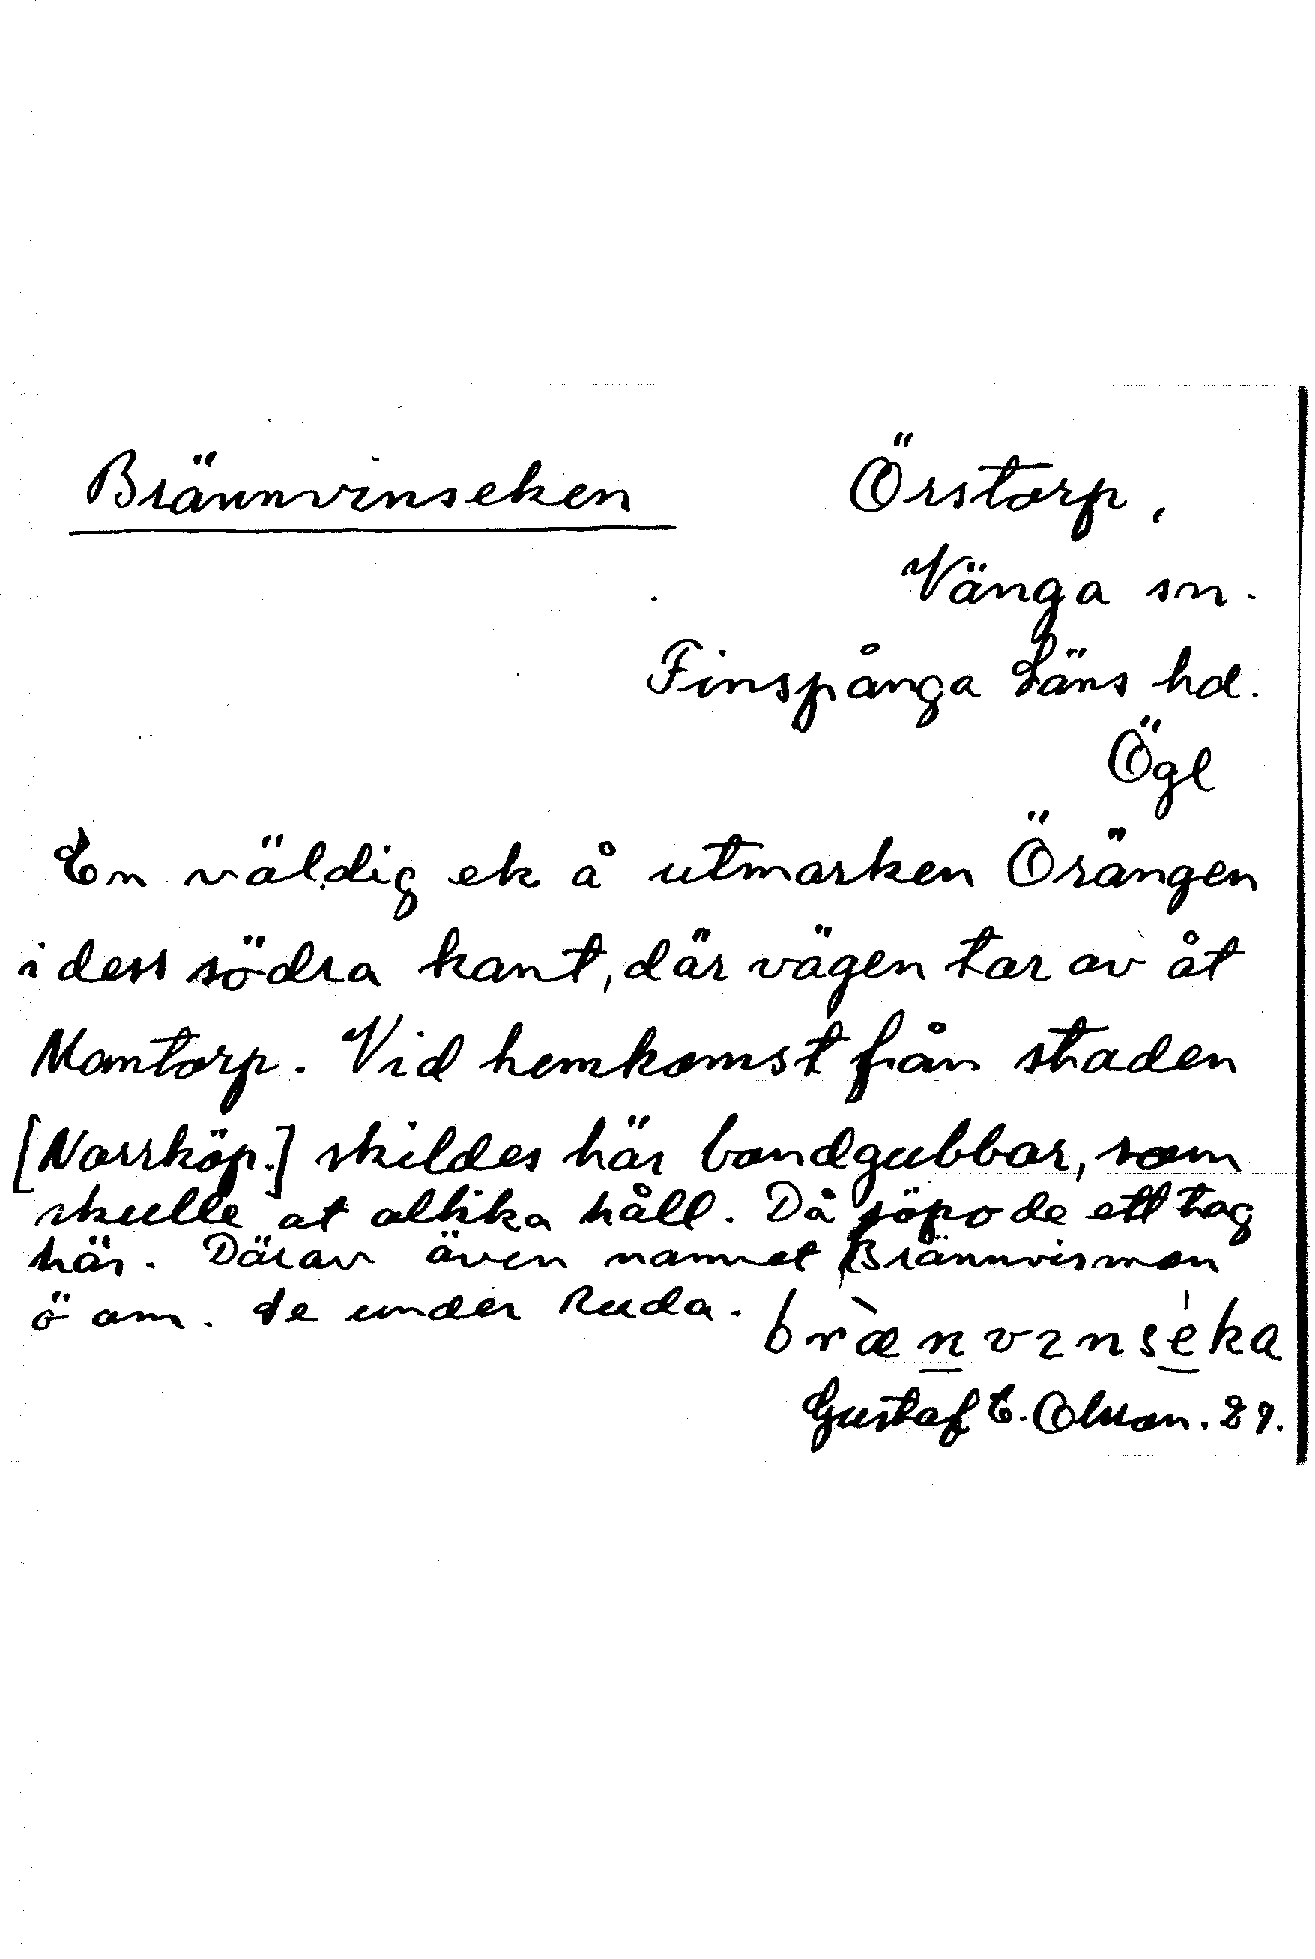 Brännvinseken
Örstorp,
Vånga sn.
Finspånga Läns hd.
Ögl
En väldig ek å utmarken Örängen
i dess södra kant, där vägen tar av åt
Mamtorp. Vid hemkomst från staden
[Norrköp.] skildes här bondgubbar, som
skulle åt olika håll. Då söpo de ett tag
här. Därav även namnet Brännvismon
ö om. Se under Ruda.
brænvinseka
Gustaf E. Olsson. 87.